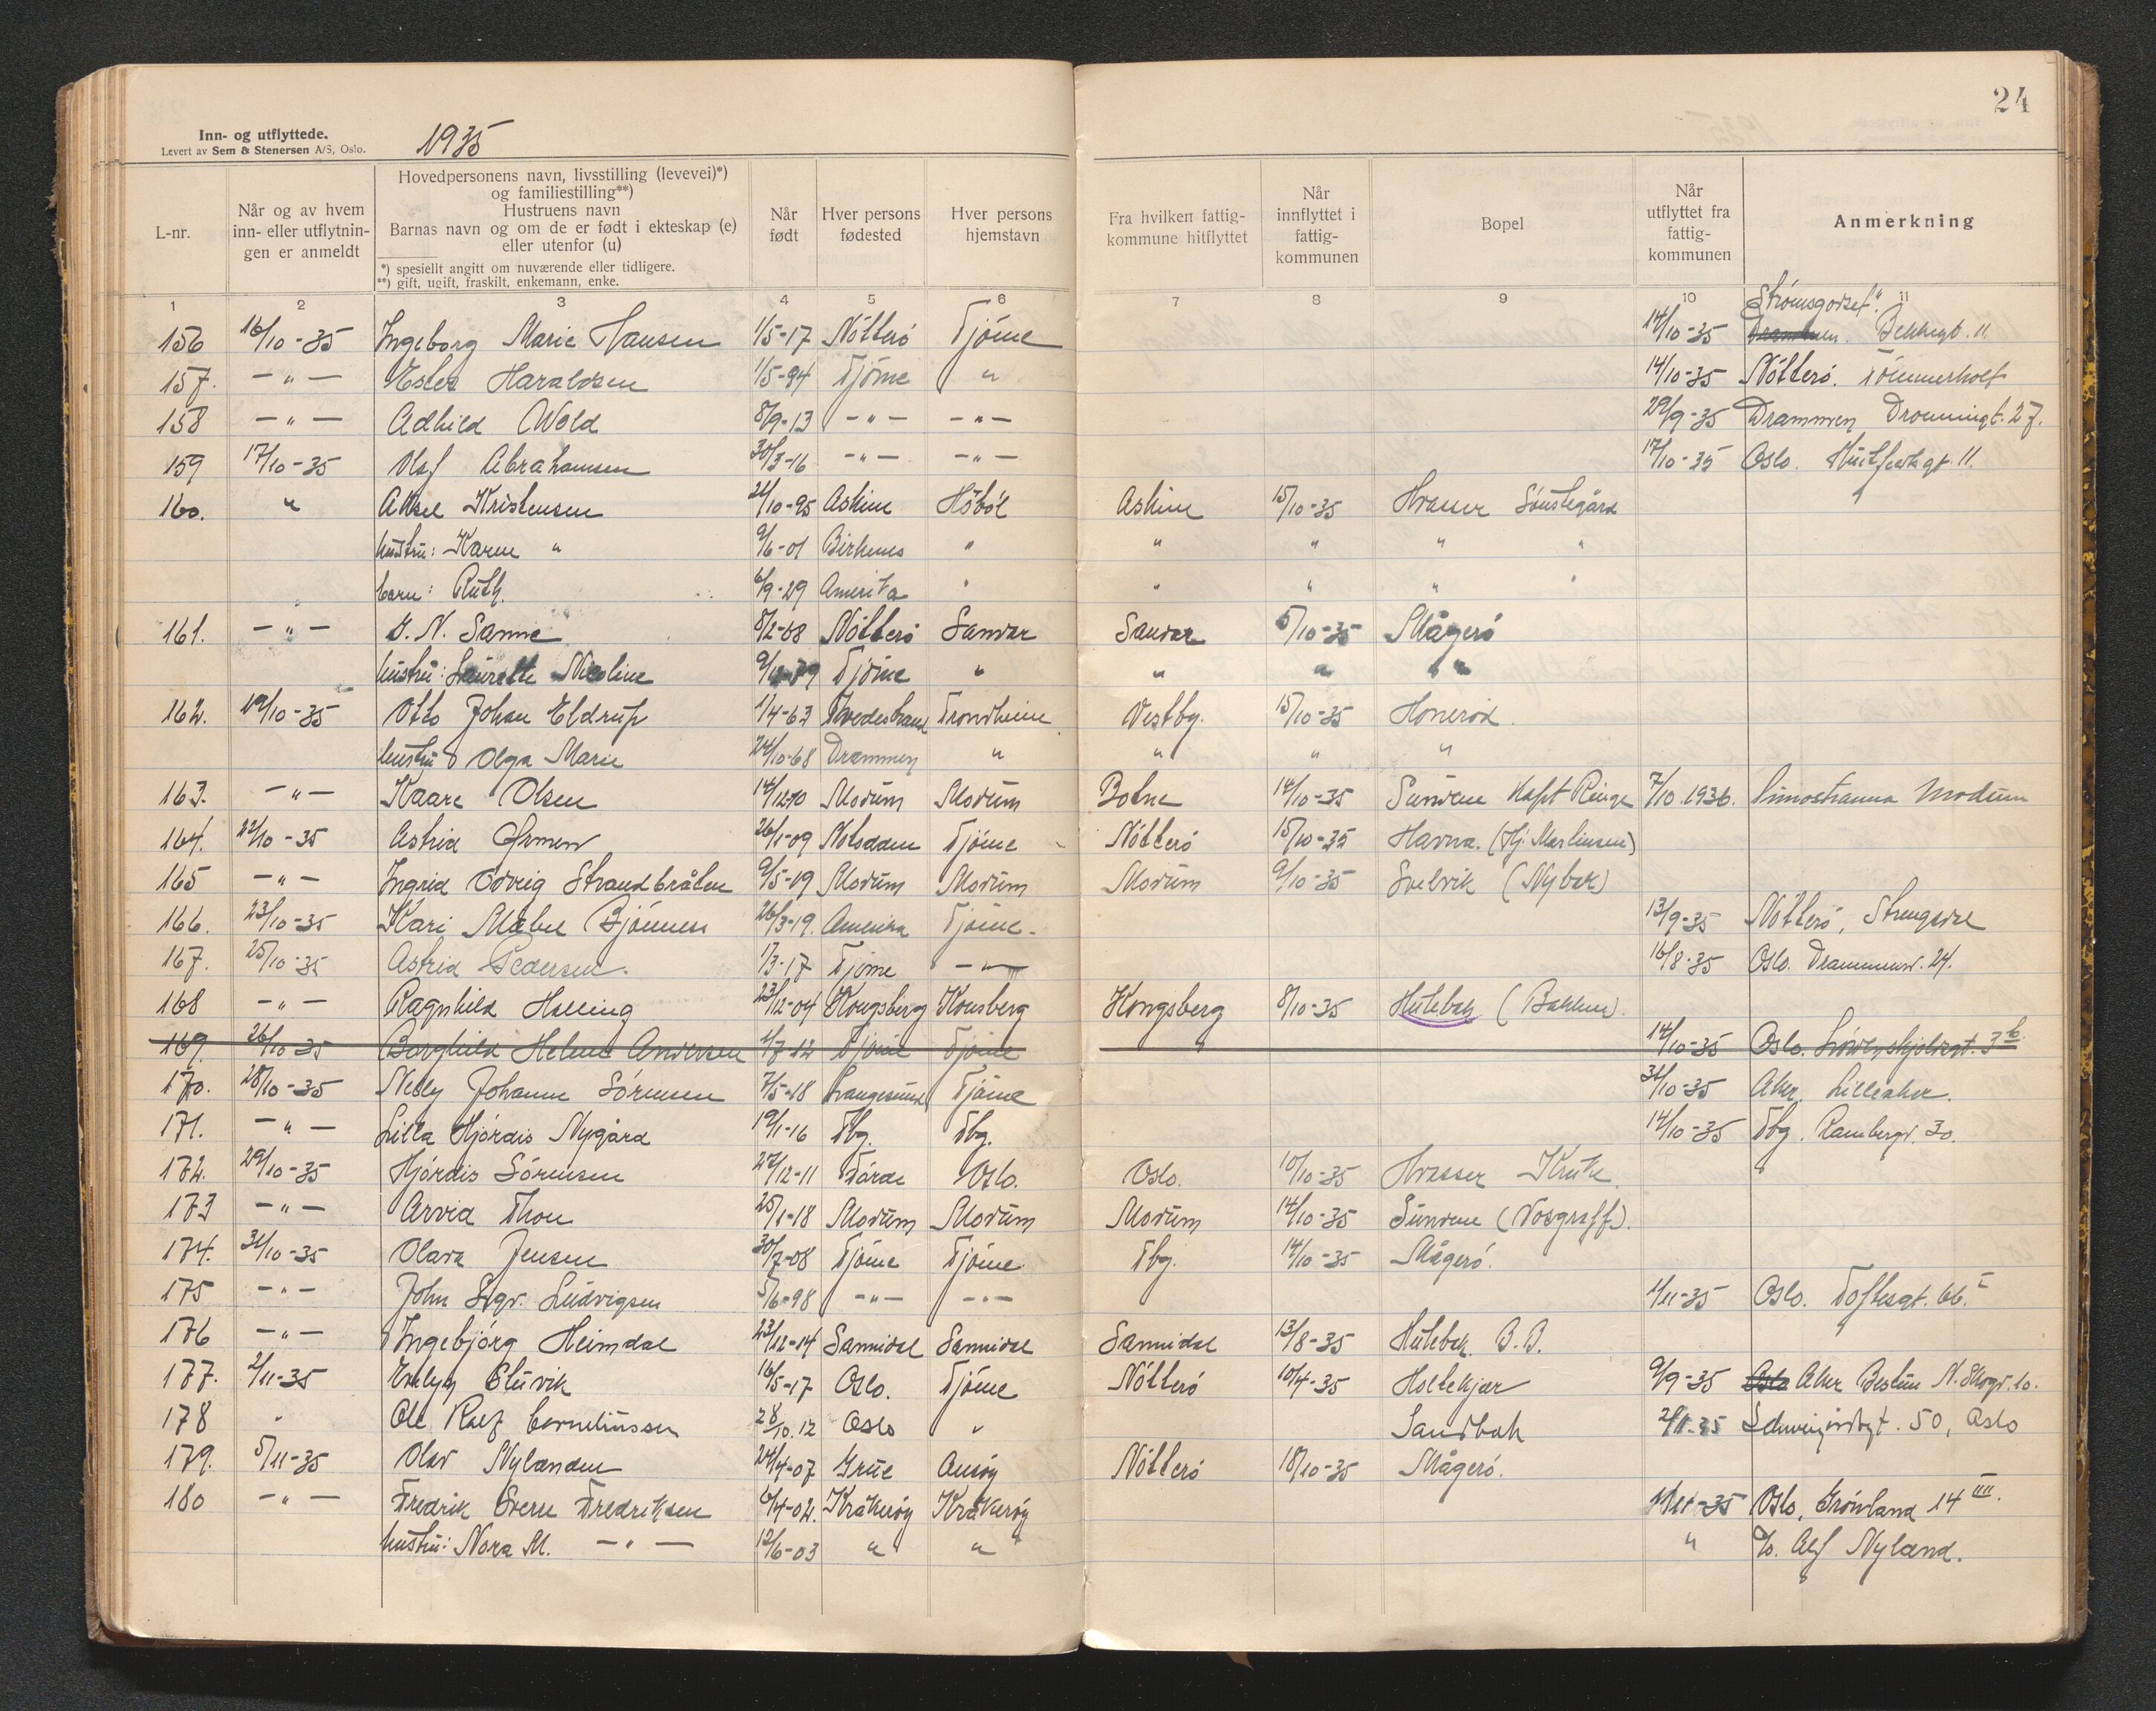 24
Inn- og utflyttede.
Levert av Sem & Stenersen A/S, Oslo.
1935
L-nr.
Når og av hvem inn- eller utflytnin-gen er anmeldt
Hovedpersonens navn, livsstilling (levevei)*)
og familiestilling**)
Hustruens navn
Barnas navn og om de er født i ekteskap (e)
eller utenfor (u)
*) spesielt angitt om nuværende eller tidligere.
**) gift, ugift, fraskilt, enkemann, enke.
Når født
Hver persons fødested
Hver persons hjemstavn
Fra hvilken fattig-kommune hitflyttet
Når innflyttet i fattig-kommunen
Bopel
Når utflyttet fra fattig-kommunen
Anmerkning
1 2 3 4 5 6 7 8 9 10 11
Strømsgodset
156 16/10-35 Ingeborg Marie Hansen 1/5-17 Nötterö Tjöme 14/10-35 Drammen. 11.
157. -"- Haraldsen 1/5-94 Tjöme " 14/10-35 Nötterö.
158 -"- Adhild Wold 8/9-13 -"- -"- 29/9-35 Drammen Dronningt. 27.
159 17/10-35 Olaf Abrahamsen 30/3-16 -"- -"- 17/10-35 Oslo. 11.
160. " Aksel Kristensen 21/10-95 Askim Höböl Askim 15/10-35 Hvasser Sönstegård
hustru: Karen " 9/6-01 Birkenes " " " " "
barn: Ruth. 6/9-29 Amerika " " " " "
161. -"- S. N. Sanne 8/2-68 Nötterö Sandar Sandar 5/10-35 Mågerö
hustru: Laurette Nicoline Tjöme " " " "
162. 19/10-35 Otto Johan Eldrup 1/4-63 Tvedestrand Trondheim Vestby. 15/10-35 Honeröd.
hustru Olga Marie 24/10-68 Drammen " " " "
163. -"- Kaare Olsen 14/12-10 Modum Modum Botne 14/10-35 Sundene Kapt Ringe 7/10.1936. Simostranna Modum
164. 22/10-35 Astrid 26/1-09 Notodden Tjöme Nötterö 15/10-35 Havna. (Hj. Martinsen)
165 -"- Ingrid Odveig Strandbråten 9/5-19 Modum Modum Modum 9/10-35 Svelvik (Nybak)
166. 23/10-35 Kari Mabel Bjönnes 26/3-19. Amerika Tjöme. 13/9-35 Nötterö,
167. 25/10-35 Astrid Pedersen. 1/3-17 Tjöme -"- 16/8-35 Oslo. Drammensv. 24.
168 -"- Ragnhild Helling 23/12-04 Kongsberg Konsberg Kongsberg 8/10-35 Hulebak (Bakken).
169. 26/10-35 Borghild Helene Andersen 4/7-12 Tjöme Tjöme 14/10-35 Oslo. Lövenskjoldsgt. 3 b.
170. 28/10-35 Nelly Johanne Sörensen 7/5-18 Langesund Tjöme 31/10-35 Aker. Lilleaker.
171. -"- Lilla Hjördis Nygård 19/1-16 Tbg. Tbg. 14/10-35 Tbg. Rambergv. 30.
172. 29/10-35 Hjördis Sörensen 27/12-11 Förde Oslo. Oslo. 10/10-35 Hvasser Kruk.
173 -"- Arvid Thon 25/1-18 Modum Modum Modum 14/10-35 Sundene (Vosgraff).
174. 31/10-35 Olava Jensen 30/7-08 Tjöme Tjöme Tbg. 14/10-35 Mågerö.
175 -"- John Sigv. Ludvigsen 5/6-98 -"- -"- 1/11-35 Oslo. Toftesgt. 66. I
176 -"- Ingebjörg Heimdal 23/12-14 Sannidal Sannidal Sannidal 13/8-35 Hulebak. B.B.
177. 2/11-35 Evelyn Eluvik 16/5-17 Oslo. Tjöme Nötterö 10/4-35 Holtekjær 9/9-35 Oslo Aker Bestum N. Skogv. 10.
178 " Ole Ralf Corneliussen 28/10.12 Oslo " Sandbak 2/11-35 Schweigårdsgt. 50, Oslo
179. 5/11-35 Olav Nylanden 24/4-07 Grue Nötterö 18/10-35 Mågerö.
180 -"- Fredrik Sverre Fredriksen 6/4-02. Kråkeröy Kråkeröy 1/11-35 Oslo, Grönland 14 III.
hustru: Nora M. -"- 12/6-03 " " " c/o. Alf Nyland.